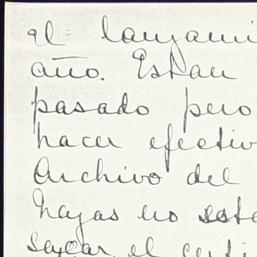 el lanzami
año. Estan
pasado pero
hacer efectiv
Archivo del
Hayas no esta
sacar el certi